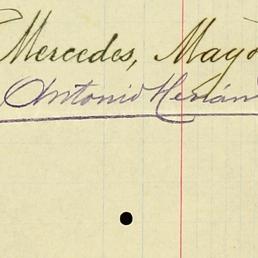 Mercedes, Mayo
Antonio Hernán